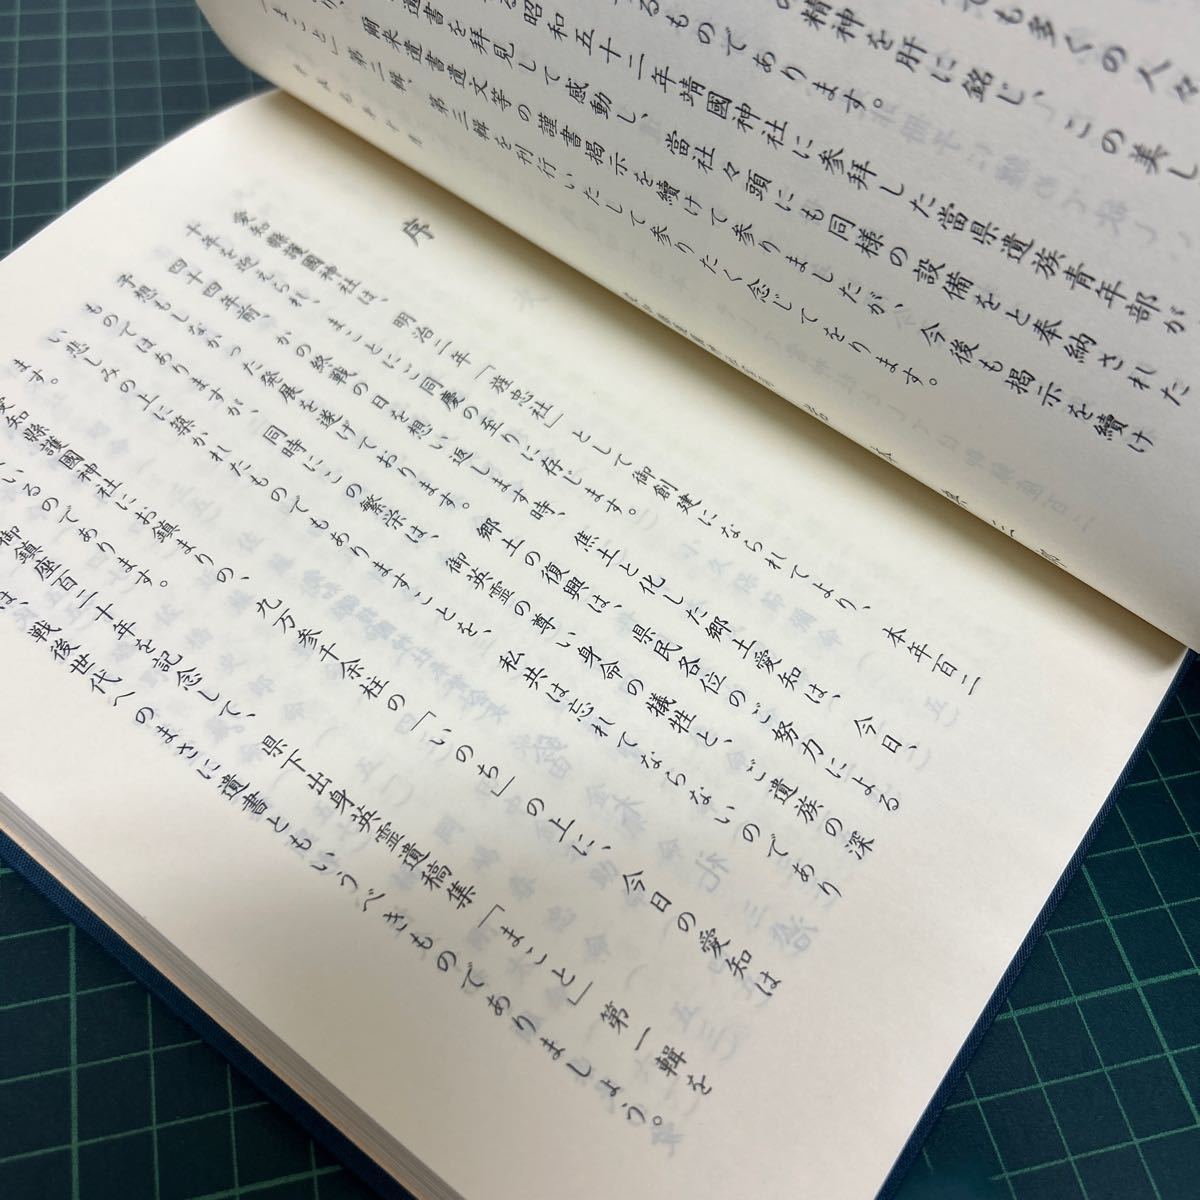 ても多くの人々
の精神を肝に銘じ、この美し
るものであります。
昭和五十二年靖國神社に参拝した當県遺族青年部が
遺書を拝見して感動し、當社々頭にも同様の設備をと奉納された
爾来遺書遺文等の謹書掲示を續けて参りましたが、今後も掲示を續け
「まこと」第二輯、第三輯を刊行いたして参りたく念じてをります。
序
愛知縣護國神社は、明治二年「旌忠社」として御創建になられてより、本年百二
十年を迎えられ、まことにご同慶の至りに存じます。
四十四年前、かの終戦の日を想い返します時、焦土と化した郷土愛知は、今日、
予想もしなかった発展を遂げております。郷土の復興は、県民各位のご努力による
ものではありますが、同時にこの繁栄は、御英霊の尊い身命の犠牲と、ご遺族の深
い悲しみの上に築かれたものでもありますことを、私共は忘れてならないのであり
ます。
愛知縣護國神社にお鎮まりの、九万参千余柱の「いのち」の上に、今日の愛知は
いるのであります。
御鎮座百二十年を記念して、県下出身英霊遺稿集「まこと」第一輯を
は、戦後世代へのまさに遺書ともいうべきものでありましょう。